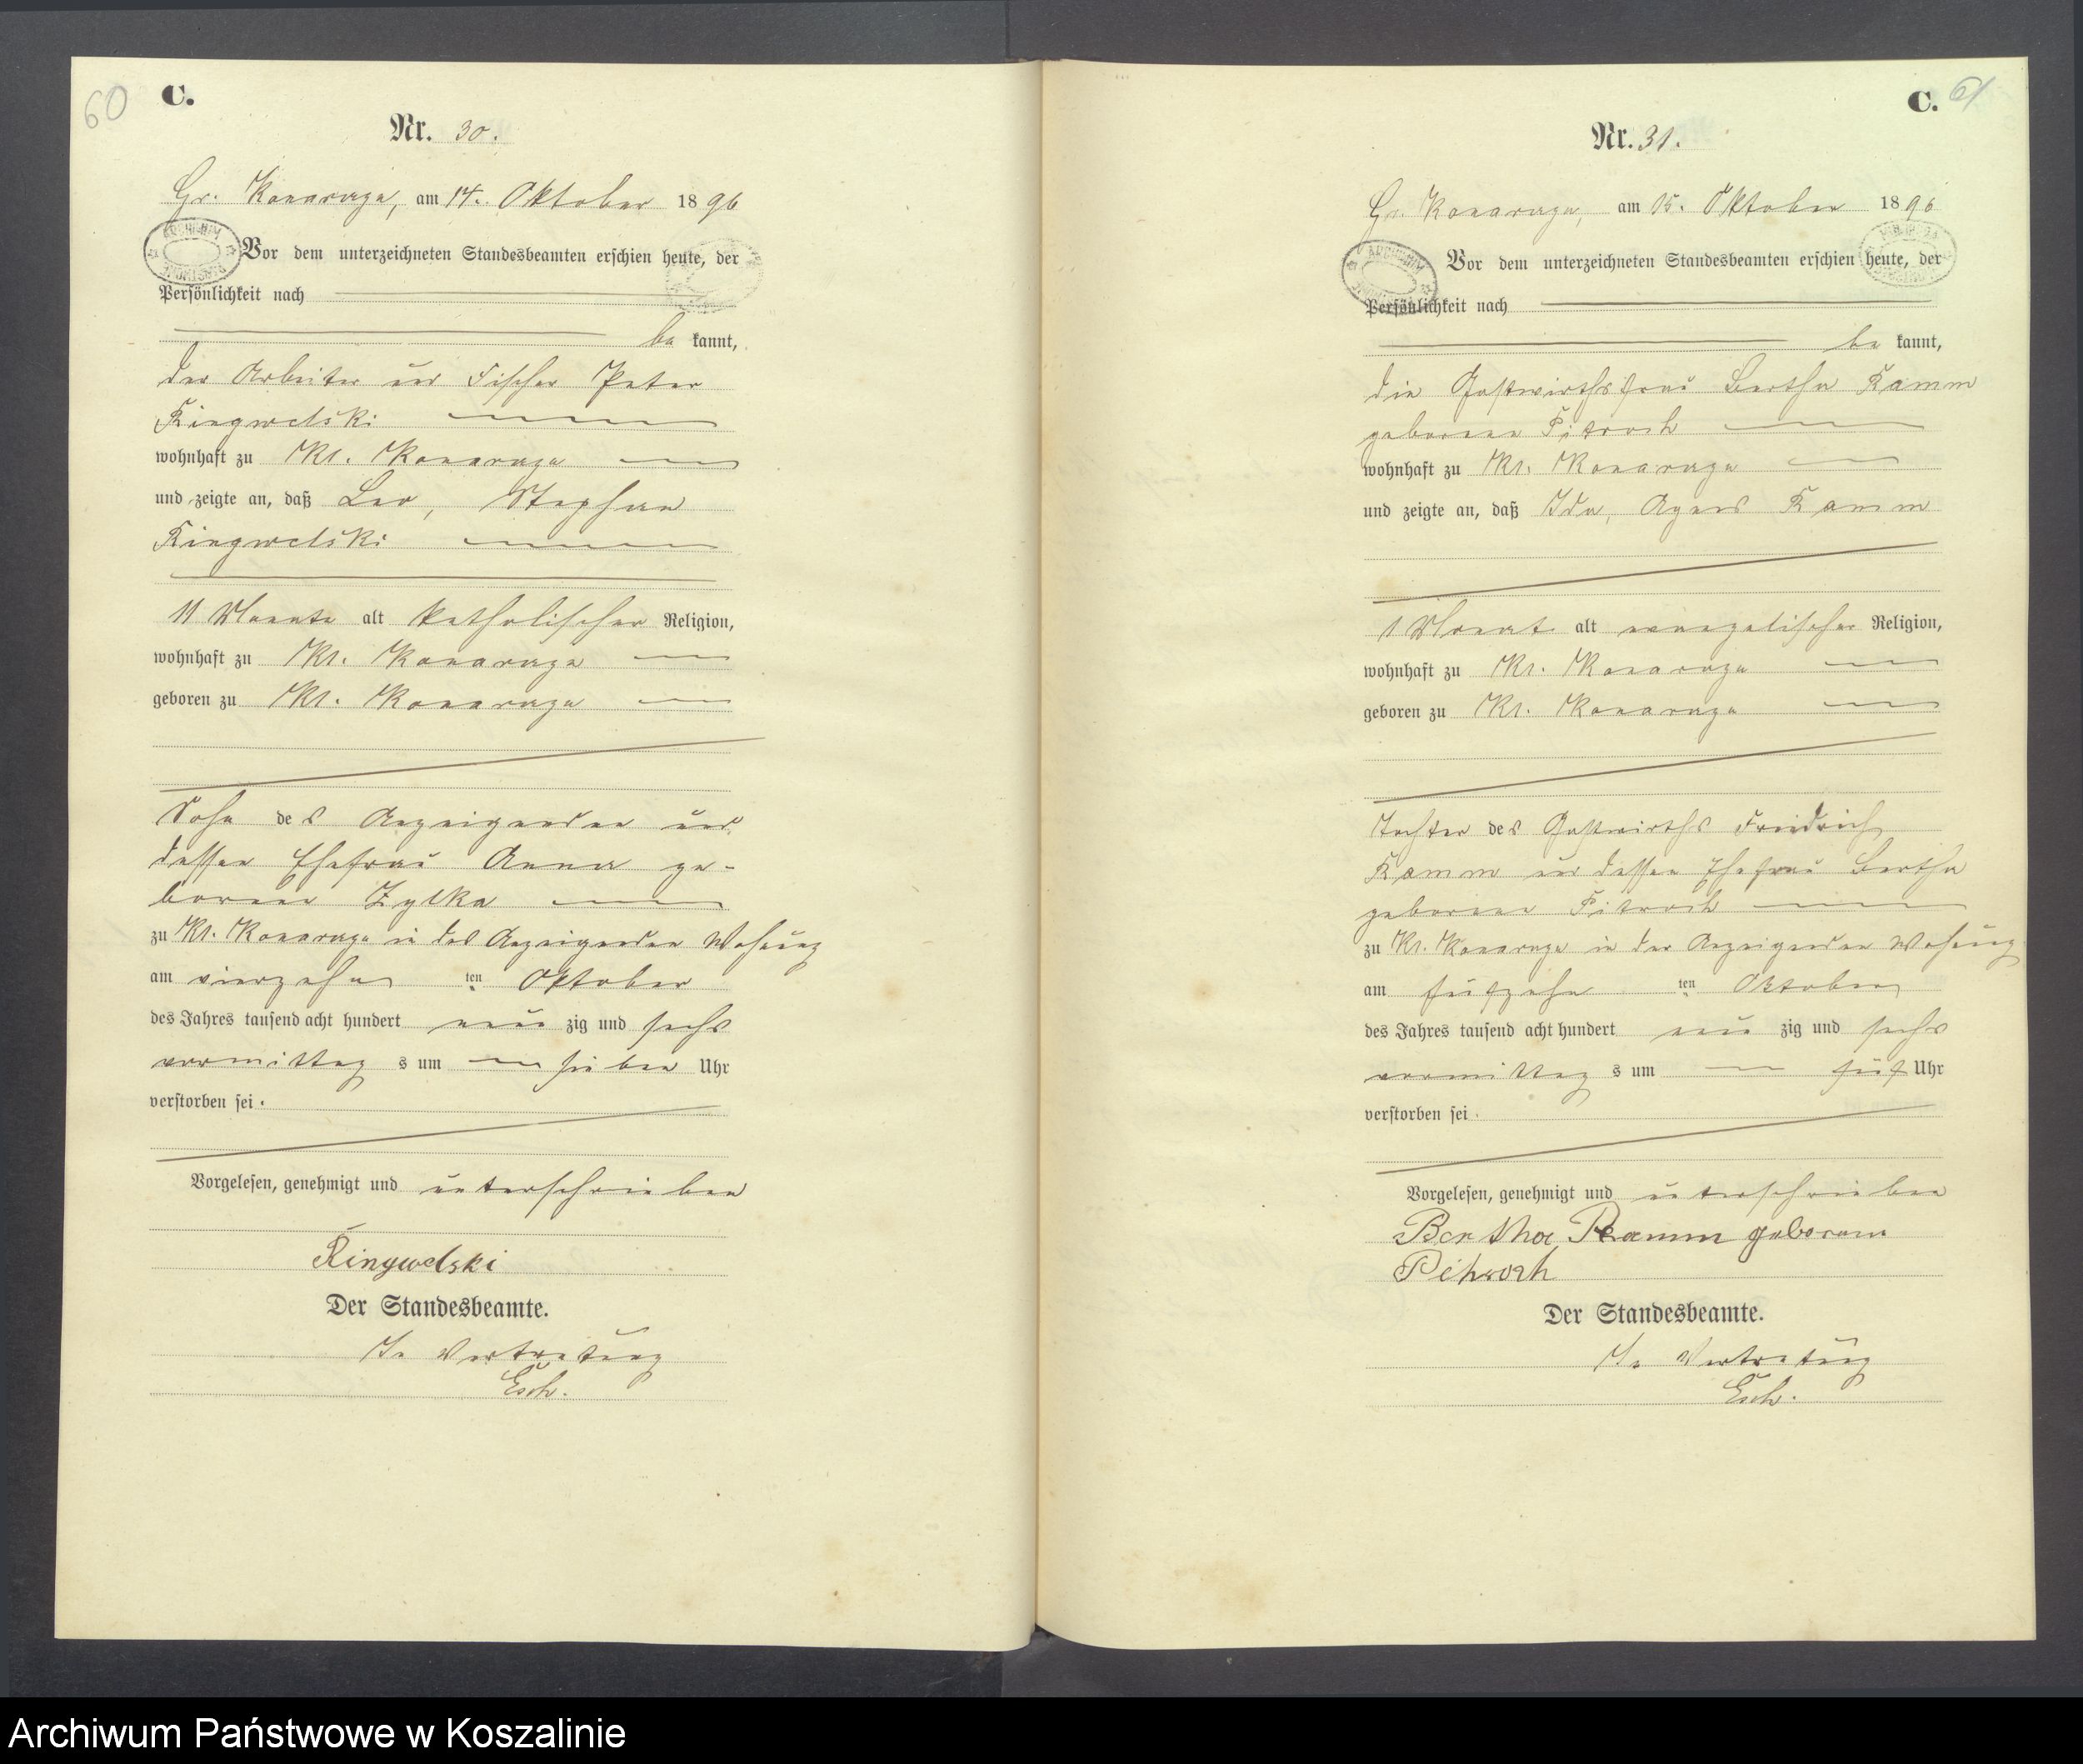 60
C.
Nr. 30.
Gr. Konarczyn, am 14. Oktober 1896
Vor dem unterzeichneten Standesbeamten erschien heute, der
Persönlichkeit nach
be kannt,
der Arbeiter und Fischer Peter
Ringwelski
wohnhaft zu Kl. Konarczyn
und zeigte an, daß Leo, Stephan
Ringwelski
11 Monate alt katholischer Religion,
wohnhaft zu Kl. Konarczyn
geboren zu Kl. Konarczyn
Sohn des Anzeigenden und
dessen Ehefrau Anna ge-
borene Zylka
zu Kl. Konarczyn in des Anzeigenden Wohnung
am vierzehn ten Oktober
des Jahres tausend acht hundert neun zig und sechs
vormittag s um sieben Uhr
verstorben sei.
Vorgelesen, genehmigt und unterschrieben
Ringwelski
Der Standesbeamte.
In Vertretung
Esch.
61
C.
Nr. 31.
Gr. Konarczyn, am 15. Oktober 1896
Vor dem unterzeichneten Standesbeamten erschien heute, der
Persönlichkeit nach
be kannt,
die Gastwirthsfrau Bertha Ramm
geborene
wohnhaft zu Kl. Konarczyn
und zeigte an, daß Ida, Agnes Ramm
1 Monat alt evangelischer Religion,
wohnhaft zu Kl. Konarczyn
geboren zu Kl. Konarczyn
Tochter des Gastwirths Friedrich
Ramm und dessen Ehefrau Bertha
geborene
zu Kl. Konarczyn in der Anzeigenden Wohnung
am fünfzehn ten Oktober
des Jahres tausend acht hundert neun zig und sechs
vormittag s um fünf Uhr
verstorben sei.
Vorgelesen, genehmigt und unterschrieben
Bertha Ramm geborene
Der Standesbeamte.
In Vertretung
Esch.
Archiwum Państwowe w Koszalinie